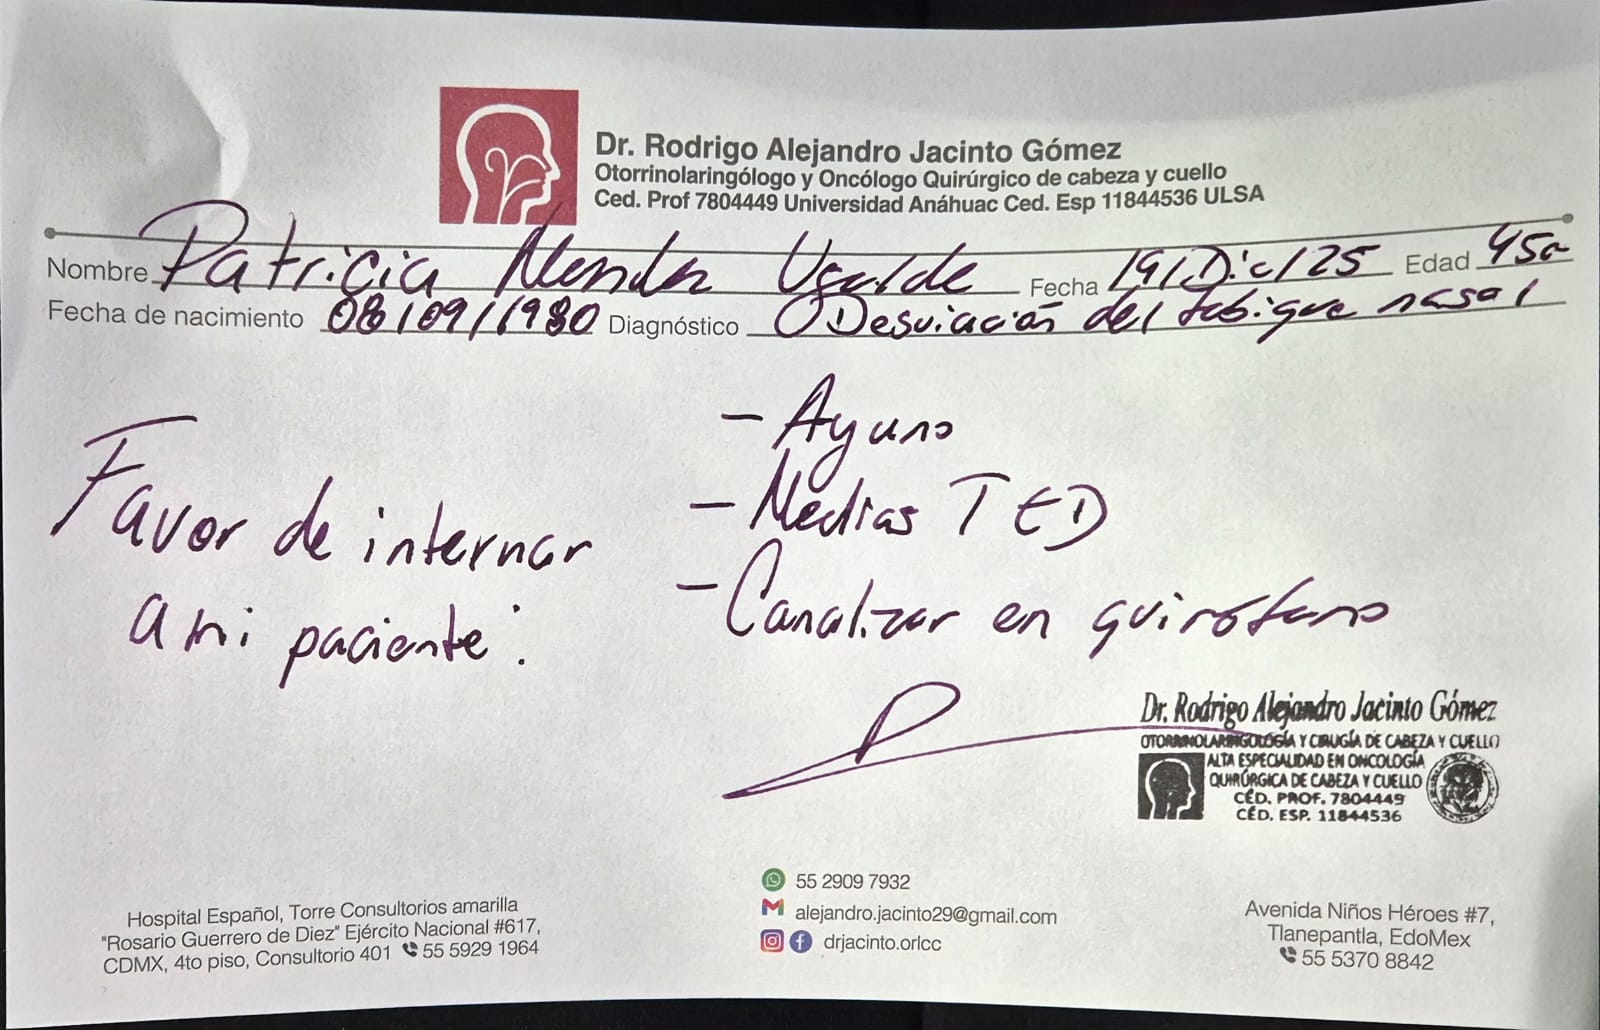 Dr. Rodrigo Alejandro Jacinto Gómez
Otorrinolaringólogo y Oncólogo Quirúrgico de cabeza y cuello
Ced. Prof 7804449 Universidad Anáhuac Ced. Esp 11844536 ULSA
Nombre Patricia Ugalde Fecha 19/Dic/25 Edad 45a
Fecha de nacimiento 08/09/1980 Diagnóstico Desviación del tabique nasal
Favor de internar
a mi paciente:
- Ayuno
- Medias TED
- Canalizar en quirófano
Dr. Rodrigo Alejandro Jacinto Gómez
OTORRINOLARINGOLOGÍA Y CIRUGÍA DE CABEZA Y CUELLO
ALTA ESPECIALIDAD EN ONCOLOGÍA
QUIRÚRGICA DE CABEZA Y CUELLO
CÉD. PROF. 7804449
CÉD. ESP. 11844536
Hospital Español, Torre Consultorios amarilla
"Rosario Guerrero de Diez" Ejército Nacional #617,
CDMX, 4to piso, Consultorio 401 55 5929 1964
55 2909 7932
alejandro.jacinto29@gmail.com
drjacinto.orlcc
Avenida Niños Héroes #7,
Tlanepantla, EdoMex
55 5370 8842